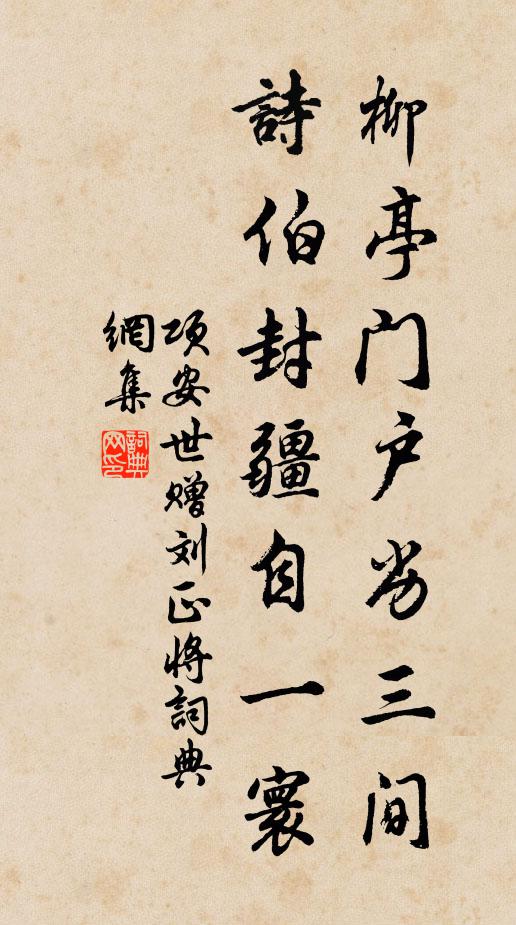 柳亭门户劣三间
詩伯封疆自一寰
项安世赠刘正将詞典
網集
詞典網印